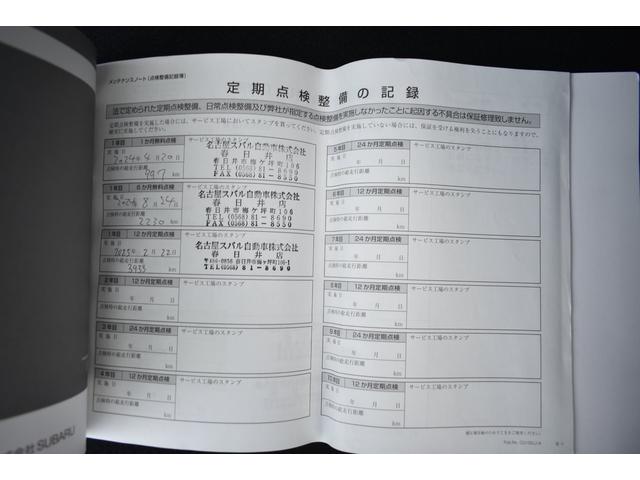 メンテナンスノート(点検整備記録簿)
定期点検整備の記録
法で定められた定期点検整備、日常点検整備及び弊社が指定する点検整備を実施しなかったことに起因する不具合は保証修理致しません。
定期点検整備を実施した場合には、サービス工場においてスタンプを貰ってください。
定期点検整備を実施していない場合には、保証を受ける権利を失うこともありますので、
確実に実施してください。
1年目 1か月無料点検 サービス工場のスタンプ
実施日
2024年4月20日
点検時の総走行距離
997 km
名古屋スバル自動車株式会社
春日井店
春日井市梅ケ坪町106
TEL (0568) 81-8690
FAX (0568) 81-8550
1年目 6か月無料点検 サービス工場のスタンプ
実施日
2024年8月24日
点検時の総走行距離
2230 km
名古屋スバル自動車株式会社
春日井店
春日井市梅ケ坪町106
TEL (0568) 81-8690
FAX (0568) 81-8550
1年目 12か月定期点検 サービス工場のスタンプ
実施日
2025年2月22日
点検時の総走行距離
3935 km
名古屋スバル自動車株式会社
春日井店
春日井市梅ケ坪町106-1
TEL(0568)81-8690
2年目 12か月定期点検 サービス工場のスタンプ
実施日
年 月 日
点検時の総走行距離
km
3年目 24か月定期点検 サービス工場のスタンプ
実施日
年 月 日
点検時の総走行距離
km
4年目 12か月定期点検 サービス工場のスタンプ
実施日
年 月 日
点検時の総走行距離
km
5年目 24か月定期点検 サービス工場のスタンプ
実施日
年 月 日
点検時の総走行距離
km
6年目 12か月定期点検 サービス工場のスタンプ
実施日
年 月 日
点検時の総走行距離
km
7年目 24か月定期点検 サービス工場のスタンプ
実施日
年 月 日
点検時の総走行距離
km
8年目 12か月定期点検 サービス工場のスタンプ
実施日
年 月 日
点検時の総走行距離
km
9年目 24か月定期点検 サービス工場のスタンプ
実施日
年 月 日
点検時の総走行距離
km
10年目 12か月定期点検 サービス工場のスタンプ
実施日
年 月 日
点検時の総走行距離
km
会社 SUBARU